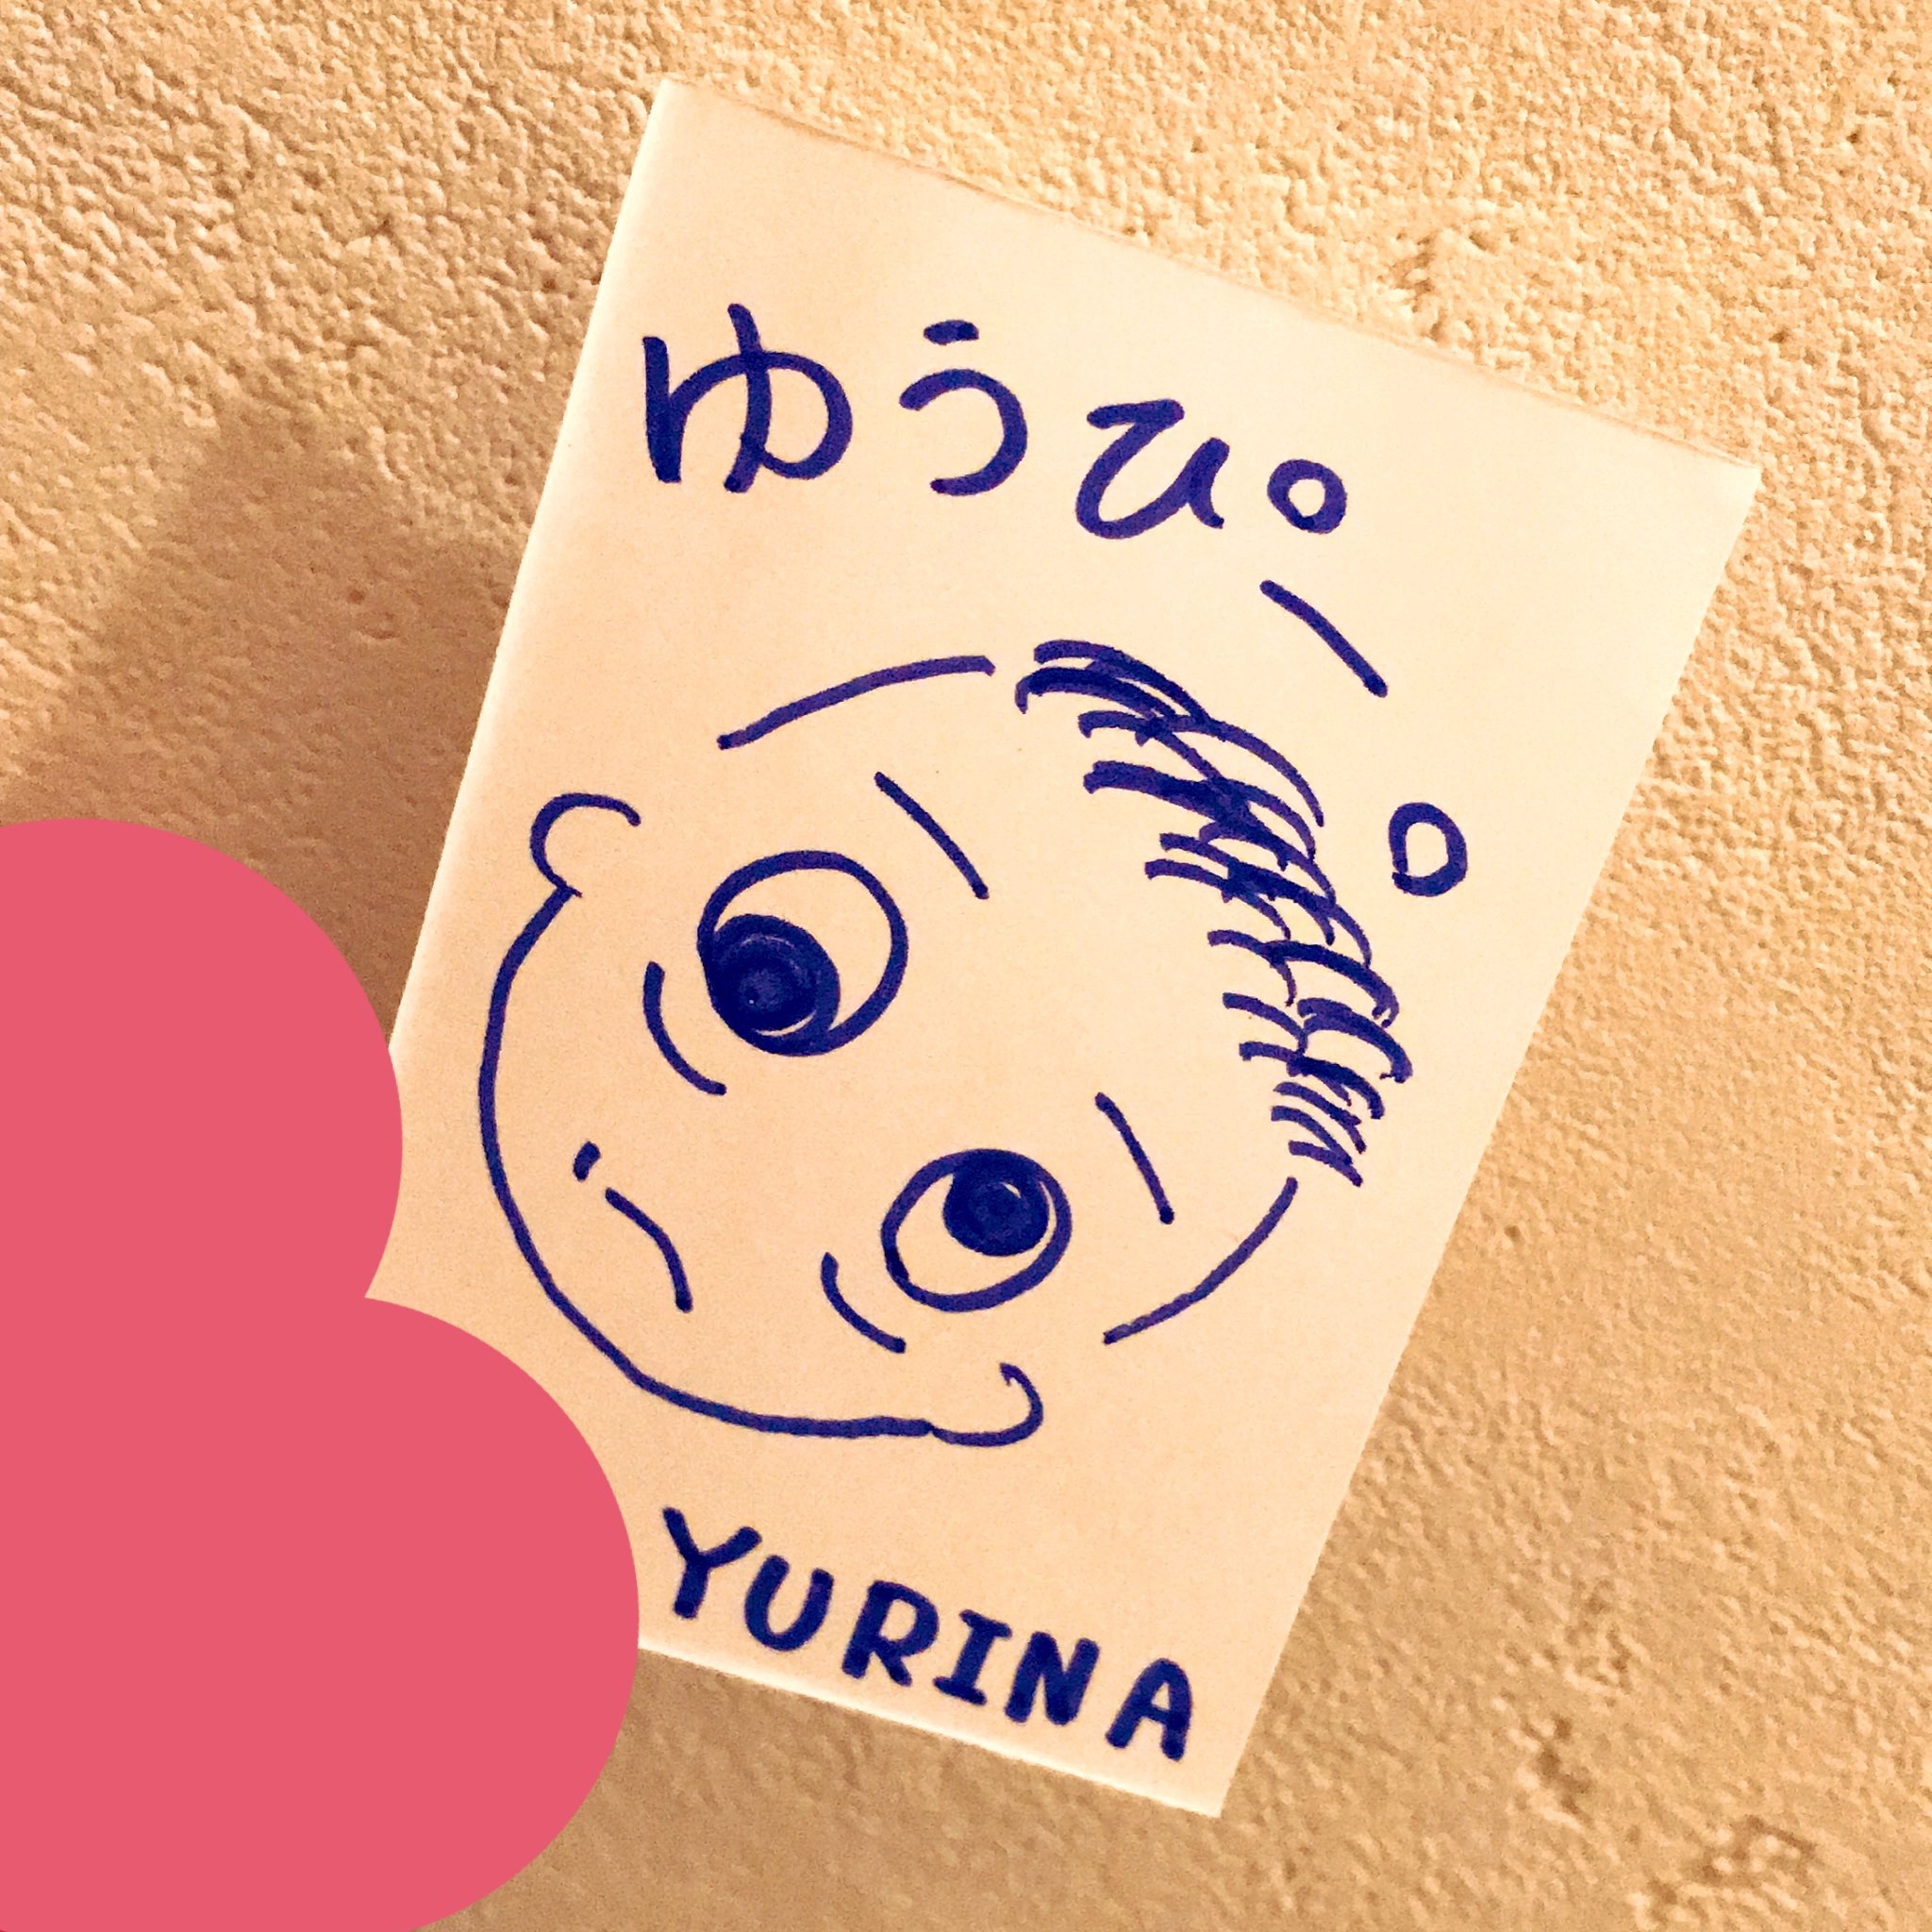 ゆうぴー。
YURINA